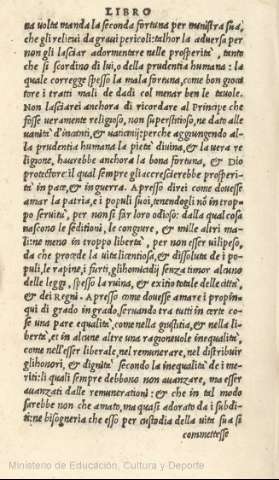 LIBRO
na volta manda la seconda fortuna per ministra sua,
che gli relieui da graui pericoli: talhor la aduersa per
non gli lasciar adormentare nelle prosperità, tanto
che si scordino di lui, o della prudentia humana: la
quale corregge spesso la mala fortuna, come bon gioca
tore i tratti mali de dadi col menar ben le tauole.
Non lasciarei anchora di ricordare al Principe che
fosse ueramente religioso, non superstitioso, ne dato alle
uanità d'incanti, & uaticinij: perche aggiungendo al-
la prudentia humana la pietà diuina, & la uera re
ligione, haurebbe anchora la bona fortuna, & Dio
protettore: il qual sempre gli accrescirebbe prosperi-
tà in pace, & in guerra. Apresso direi come douesse
amar la patria, e i populi suoi, tenendogli nõ in trop-
po seruitù, per non si far loro odioso: dalla qual cosa
nascono le seditioni, le congiure, & mille altri ma-
li: ne meno in troppo libertà, per non esser uilipeso,
da che procede la uita licentiosa, & dissoluta de i po-
puli, le rapine, i furti, gli homicidij senza timor alcuno
delle leggi, spesso la ruina, & exitio totale delle città,
& dei Regni. Apresso come douesse amare i propin-
qui di grado in grado, seruando tra tutti in certe co-
se una pare equalità, come nella giustitia, & nella li-
bertà, et in alcune altre una ragioneuole inequalità,
come nell'esser liberale, nel remunerare, nel distribuir
gli honori, & dignità secondo la inequalità de i me-
riti: li quali sempre debbono non auanzare, ma esser
auanzati dalle remunerationi: & che in tal modo
sarebbe non che amato, ma quasi adorato da i subdi-
ti: ne bisogneria che esso per custodia della uita sua si
commettesse
Ministerio de Educación, Cultura y Deporte